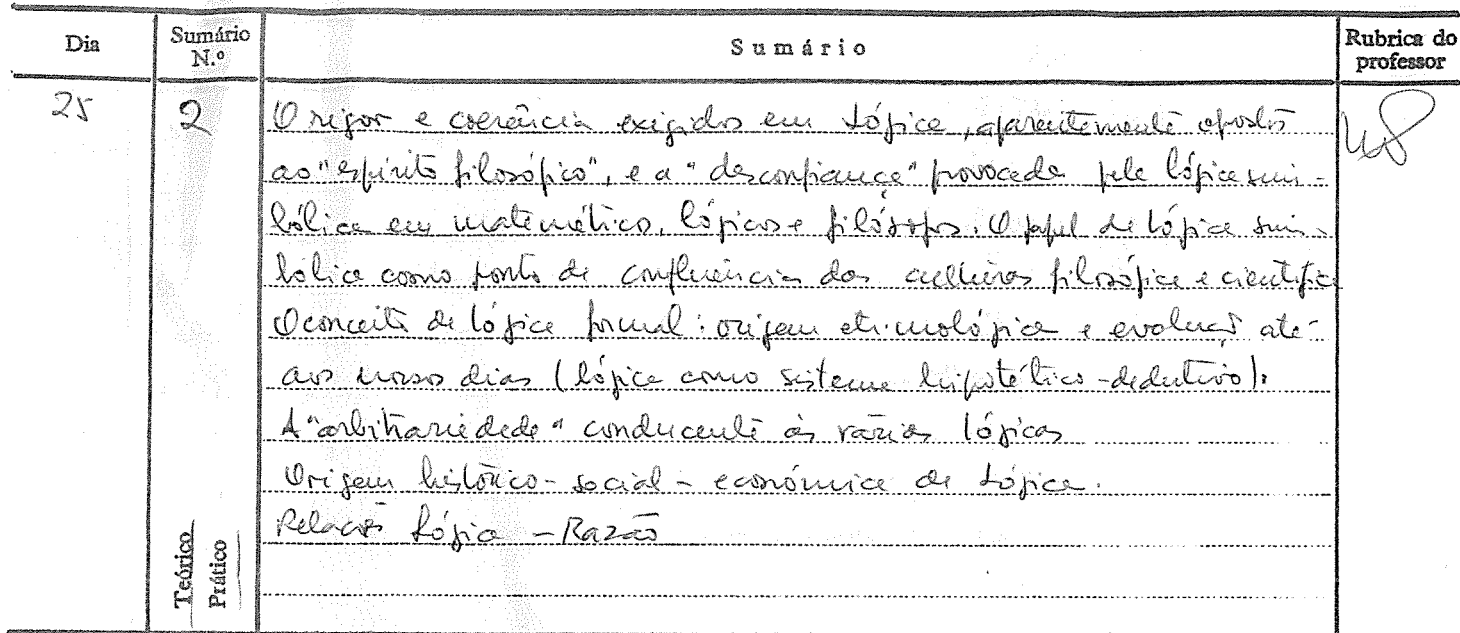 Dia
Sumário N.º
Sumário
Rubrica do professor
25
2
O rigor e coerência exigidos em Lógica, aparentemente opostos
ao "espírito filosófico", e a "desconfiança" provocada pela lógica sim-
bólica em matemáticos, lógicos e filósofos. O papel da lógica sim-
bólica como ponto de confluência das culturas filosófica e científica
O conceito de lógica formal: origem etimológica e evolução até
aos nossos dias (lógica como sistema hipotético-dedutivo).
A "arbitrariedade" conducente às várias lógicas
Origem histórico-social-económica da Lógica.
Relação Lógica - Razão
Teórico
Prático